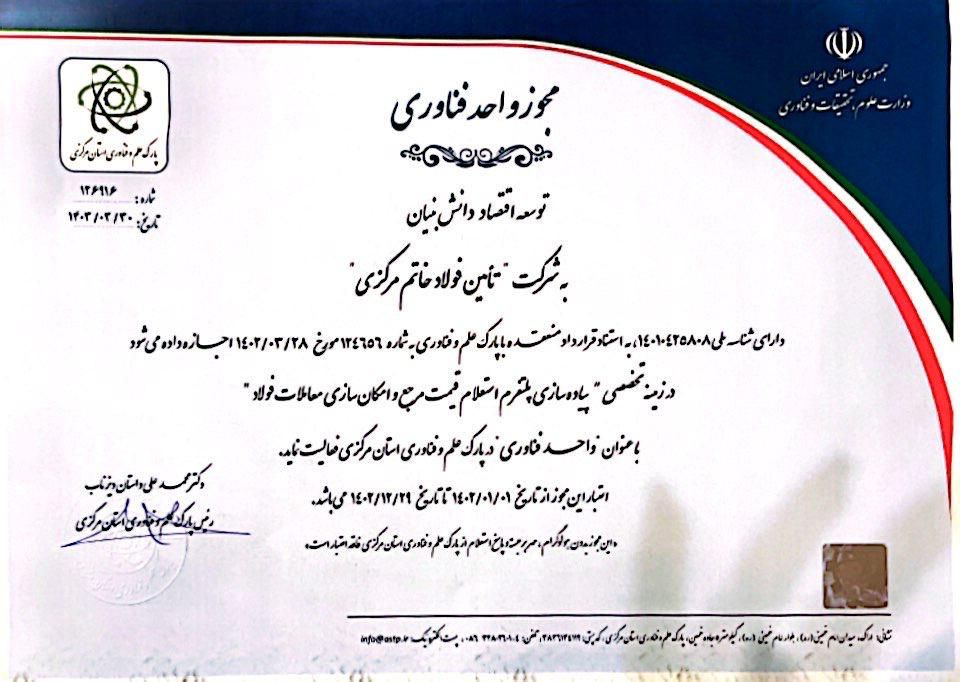 جمهوری اسلامی ایران
وزارت علوم، تحقیقات و فناوری
پارک علم و فناوری استان مرکزی
شماره: ۱۲۶۹۱۶
تاریخ: ۱۴۰۳/۰۳/۳۰
مجوز واحد فناوری
توسعه اقتصاد دانش بنیان
به شرکت "تأمین فولاد خاتم مرکزی"
دارای شناسه ملی ۱۴۰۱۰۴۲۵۸۰۸، به استناد قرارداد منعقده با پارک علم و فناوری به شماره ۱۲۴۶۵۶ مورخ ۱۴۰۲/۰۳/۲۸ اجازه داده می شود
در زمینه تخصصی "پیاده سازی پلتفرم استعلام قیمت مرجع و امکان سازی معاملات فولاد"
با عنوان واحد فناوری در پارک علم و فناوری استان مرکزی فعالیت نماید.
اعتبار این مجوز از تاریخ ۱۴۰۲/۰۱/۰۱ تا تاریخ ۱۴۰۲/۱۲/۲۹ می باشد.
«این مجوز بدون هولوگرام، مهر برجسته و پاسخ استعلام از پارک علم و فناوری استان مرکزی فاقد اعتبار است»
دکتر محمد علی داستان دیزناب
رئیس پارک علم و فناوری استان مرکزی
نشانی: اراک، میدان امام خمینی (ره)، بلوار امام خمینی (ره)، کیلومتر جاده خمین، پارک علم و فناوری استان مرکزی، کدپستی: تلفن: ۰۸۶ پست الکترونیک: